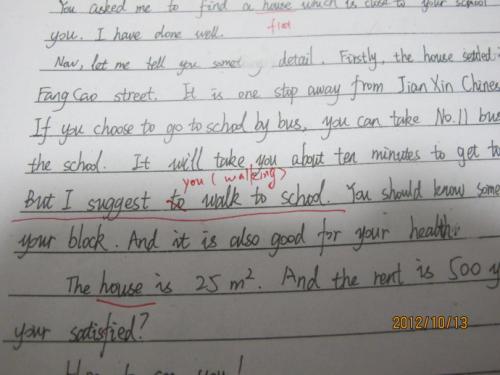 You asked me to find a house which is close to your school
you. I have done well.
flat
Now, let me tell you some detail. Firstly, the house settled
Fang Cao street. It is one stop away from Jian Xin Chines
If you choose to go to school by bus, you can take No.11 bus
the school. It will take you about ten minutes to get to
you (walking)
But I suggest to walk to school. You should know some
your block. And it is also good for your health.
The house is 25 m². And the rent is 500 y
your satisfied?
2012/10/13
Hope to see you!